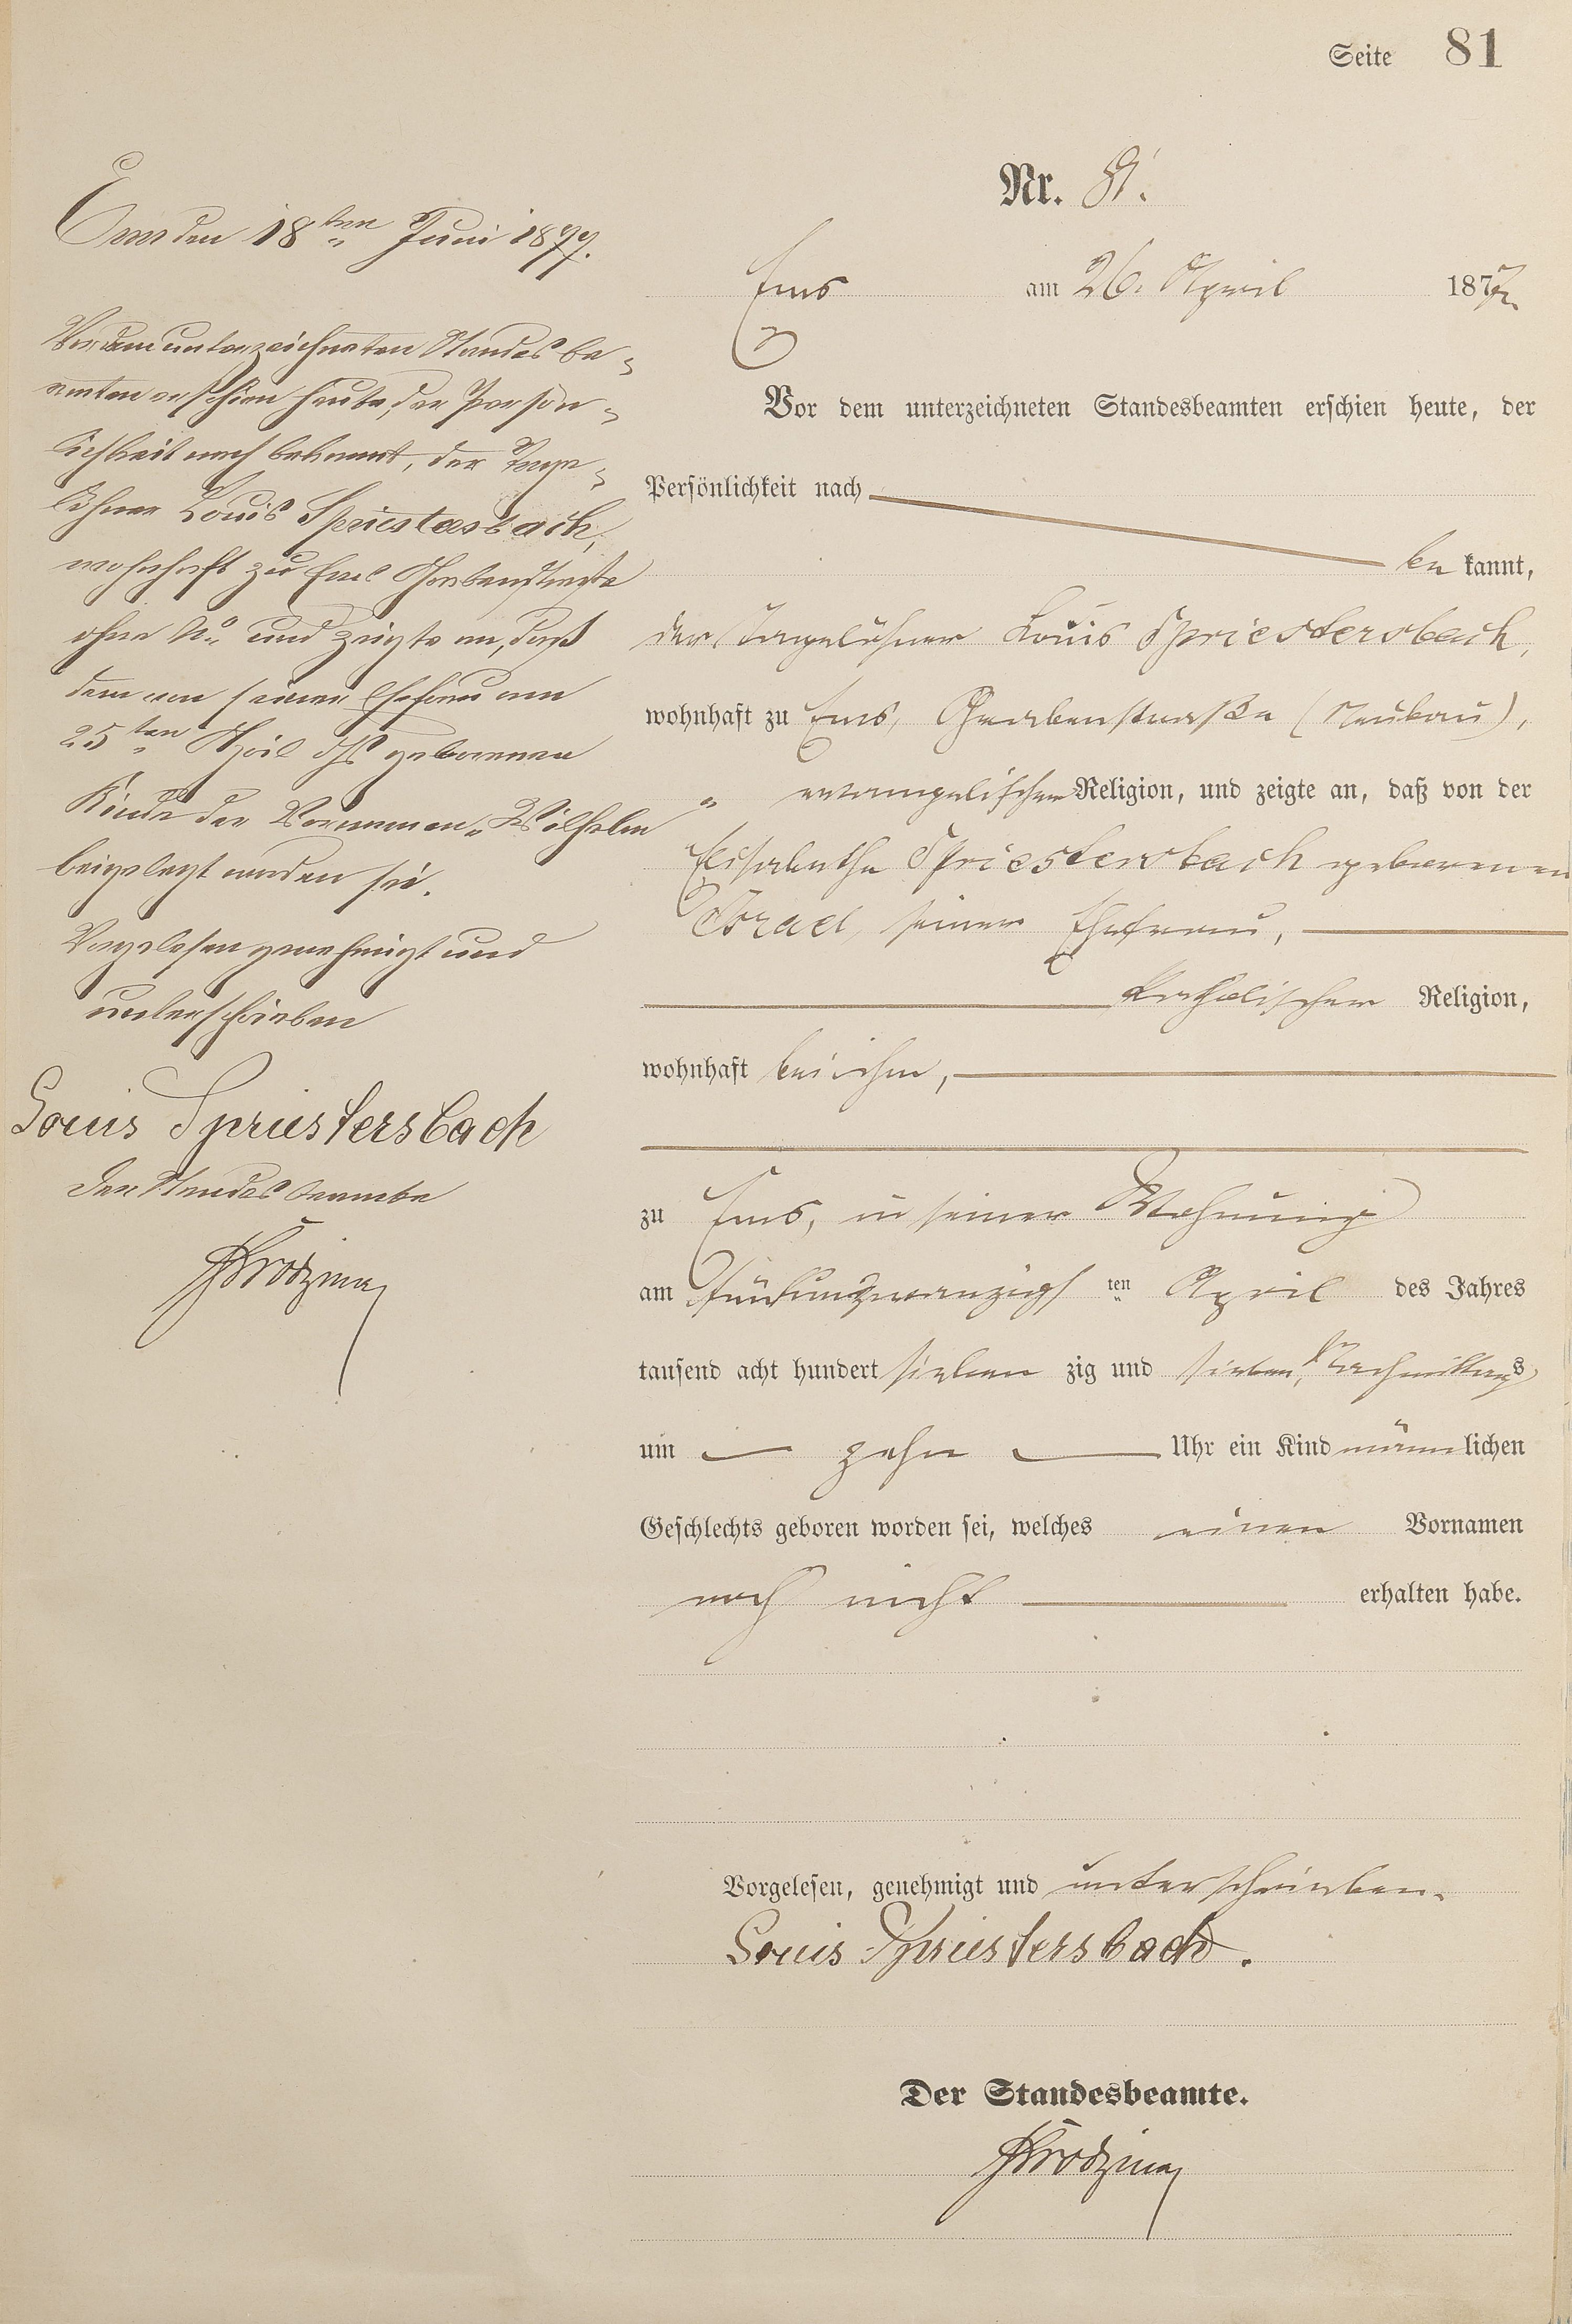 Seite 81
Nr. 81.
Ems am 26. April 1877.
Vor dem unterzeichneten Standesbeamten erschien heute, der
Persönlichkeit nach
be kannt,
der Tagelöhner Louis Spriestersbach,
wohnhaft zu Ems, Grabenstraße (Neubau),
evangelischer Religion, und zeigte an, daß von der
Elisabetha Spriestersbach geborenen
Israel, seiner Ehefrau,
katholischer Religion,
wohnhaft bei ihm,
zu Ems, in seiner Wohnung
am fünfundzwanzigs ten April des Jahres
tausend acht hundert sieben zig und sieben, Nachmittags
um zehn Uhr ein Kind männlichen
Geschlechts geboren worden sei, welches einen Vornamen
noch nicht erhalten habe.
Vorgelesen, genehmigt und unterschrieben.
Louis Spriestersbach.
Der Standesbeamte.
Ems den 18ten Juni 1877.
Vor dem unterzeichneten Standesbe-
amten erschien heute, der Persön-
lichkeit nach bekannt, der Tage-
löhner Louis Spriestersbach,
wohnhaft zu Ems Grabenstraße
ohne No und zeigte an, daß
dem von seiner Ehefrau am
25ten April geborenen
Kinde der Vornamen "Wilhelm
beigelegt worden sei.
Vorgelesen genehmigt und
unterschrieben
Louis Spriestersbach
Der Standesbeamte